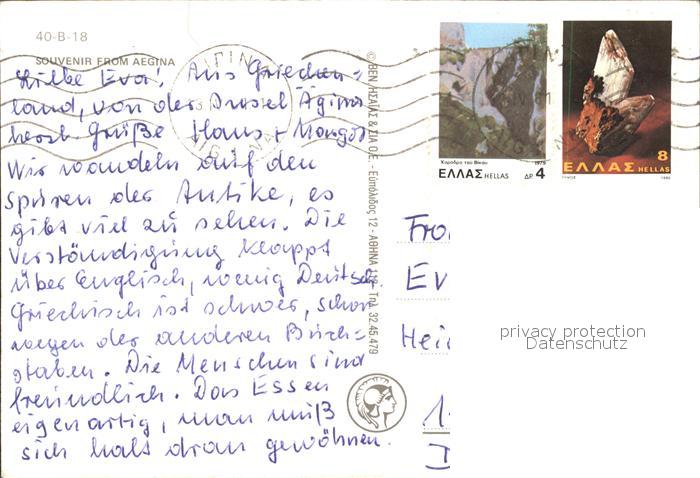 40-B-18
SOUVENIR FROM AEGINA
Liebe Eva! Aus Griechen=
land, von der Insel Ägina
herzl. Grüße Hans + Margot
Wir wandeln auf den
Spuren der Antike, es
gibt viel zu sehen. Die
Verständigung klappt
über Englisch, wenig Deutsch.
Griechisch ist schwer, schon
wegen der anderen Buch=
staben. Die Menschen sind
freundlich. Das Essen
eigenartig, man muß
sich halt dran gewöhnen.
© ΒΕΝ ΗΣΑΪΑΣ & ΣΙΑ Ο.Ε. - Ευπόλιδος 12 - ΑΘΗΝΑ - Τηλ. 32.45.479
Χαράδρα του Βίκου 1979
ΕΛΛΑΣ HELLAS ΔΡ 4
8
ΕΛΛΑΣ HELLAS
1980
Fra
Ev
Hei
privacy protection
Datenschutz
1
D